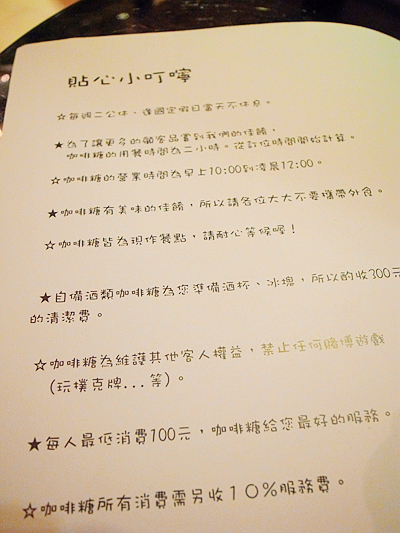 貼心小叮嚀
☆每週二公休，逢國定假日當天不休息。
★為了讓更多的顧客品嘗到我們的佳餚，
咖啡糖的用餐時間為二小時。從訂位時間開始計算。
☆咖啡糖的營業時間為早上10:00到凌晨12:00。
★咖啡糖有美味的佳餚，所以請各位大大不要攜帶外食。
☆咖啡糖皆為現作餐點，請耐心等候喔！
★自備酒類咖啡糖為您準備酒杯、冰塊，所以酌收300元
的清潔費。
☆咖啡糖為維護其他客人權益，禁止任何賭博遊戲
(玩撲克牌...等)。
★每人最低消費100元，咖啡糖給您最好的服務。
☆咖啡糖所有消費需另收１０％服務費。